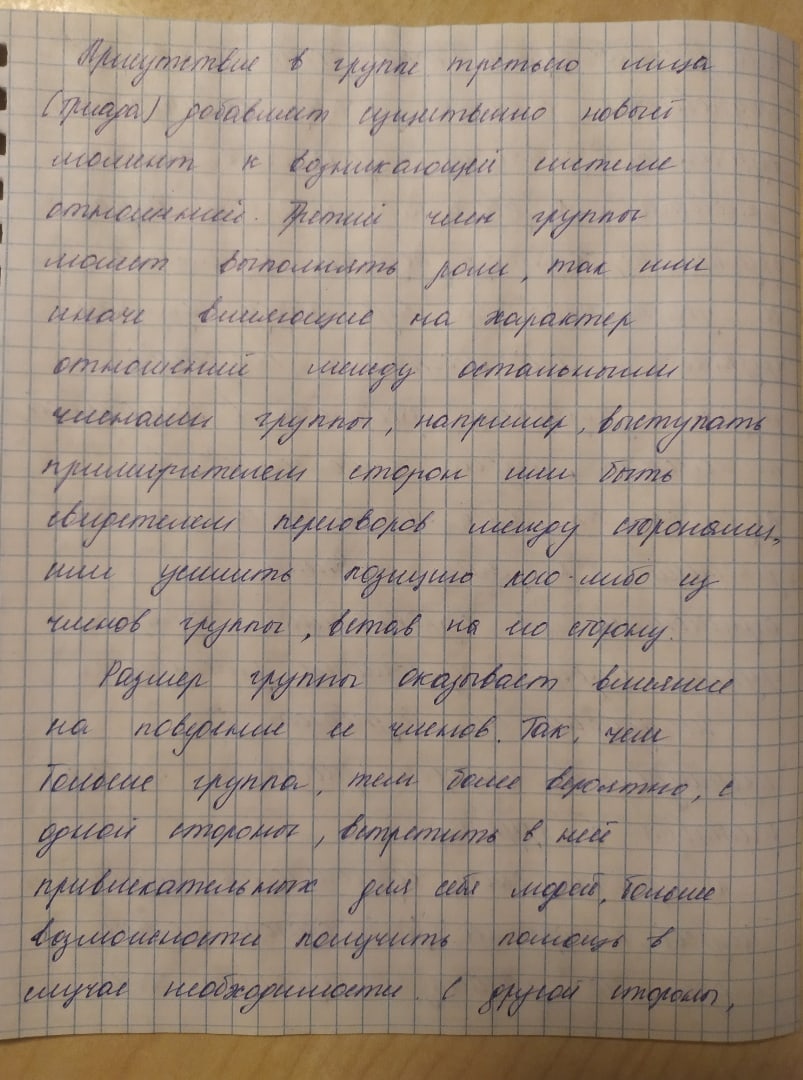 Присутствие в группе третьего лица
(триада) добавляет существенно новый
момент к возникающей системе
отношений. Третий член группы
может выполнять роли, так или
иначе влияющие на характер
отношений между остальными
членами группы, например, выступать
примирителем сторон или быть
свидетелем переговоров между сторонами,
или усилить позицию кого-либо из
членов группы, встав на его сторону.
Размер группы оказывает влияние
на поведение ее членов. Так, чем
больше группа, тем более вероятно, с
одной стороны, встретить в ней
привлекательных для себя людей, больше
возможности получить помощь в
случае необходимости. С другой стороны,